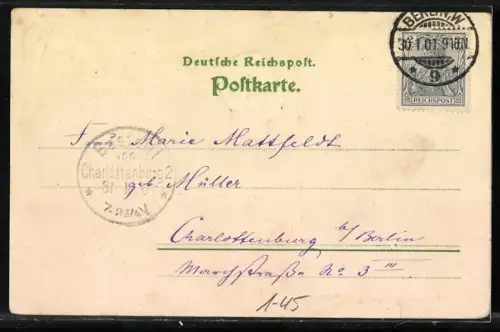 BERLIN.W.
30.1.01.9-10N
* 9 *
REICHSPOST
Deutsche Reichspost.
Postkarte.
Frau Marie Mattfeldt
geb. Müller
Charlottenburg b/Berlin
Marchstraße No 3 III
Bestellt
Charlottenburg 2
31
1-45